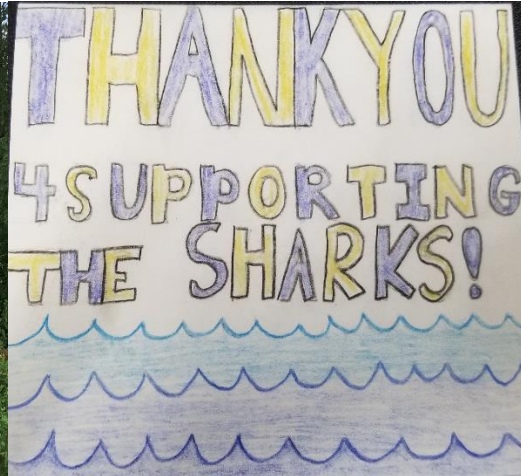 THANKYOU
4 SUPPORTING
THE SHARKS!